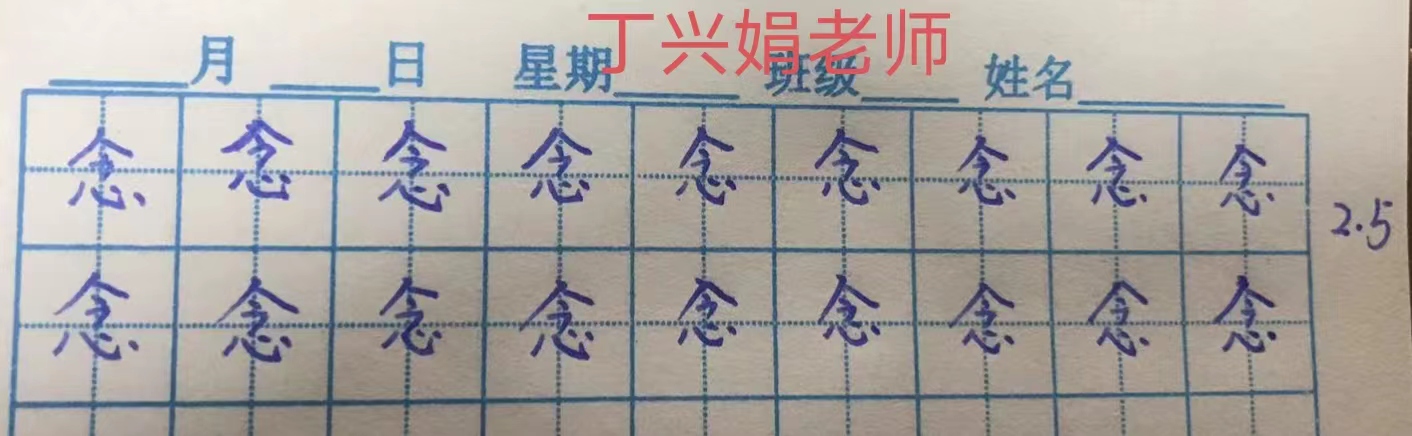 丁兴娟老师
月 日 星期 班级 姓名
念 念 念 念 念 念 念 念 念
2.5
念 念 念 念 念 念 念 念 念